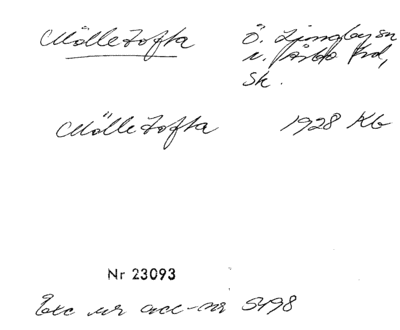 Mölletofta Ö. Ljungby sn
n. Åsbo hd,
Sk.
Mölletofta 1928 Kb
Nr 23093
Exc ur acc-nr 5498